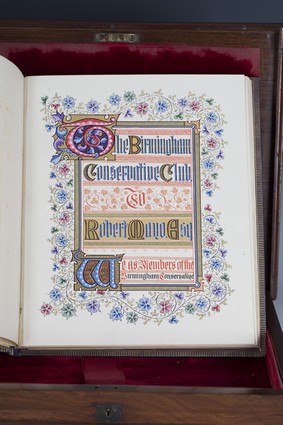 The Birmingham
Conservative Club
To
Robert Mayo Esq
We as Members of the
Birmingham Conservative